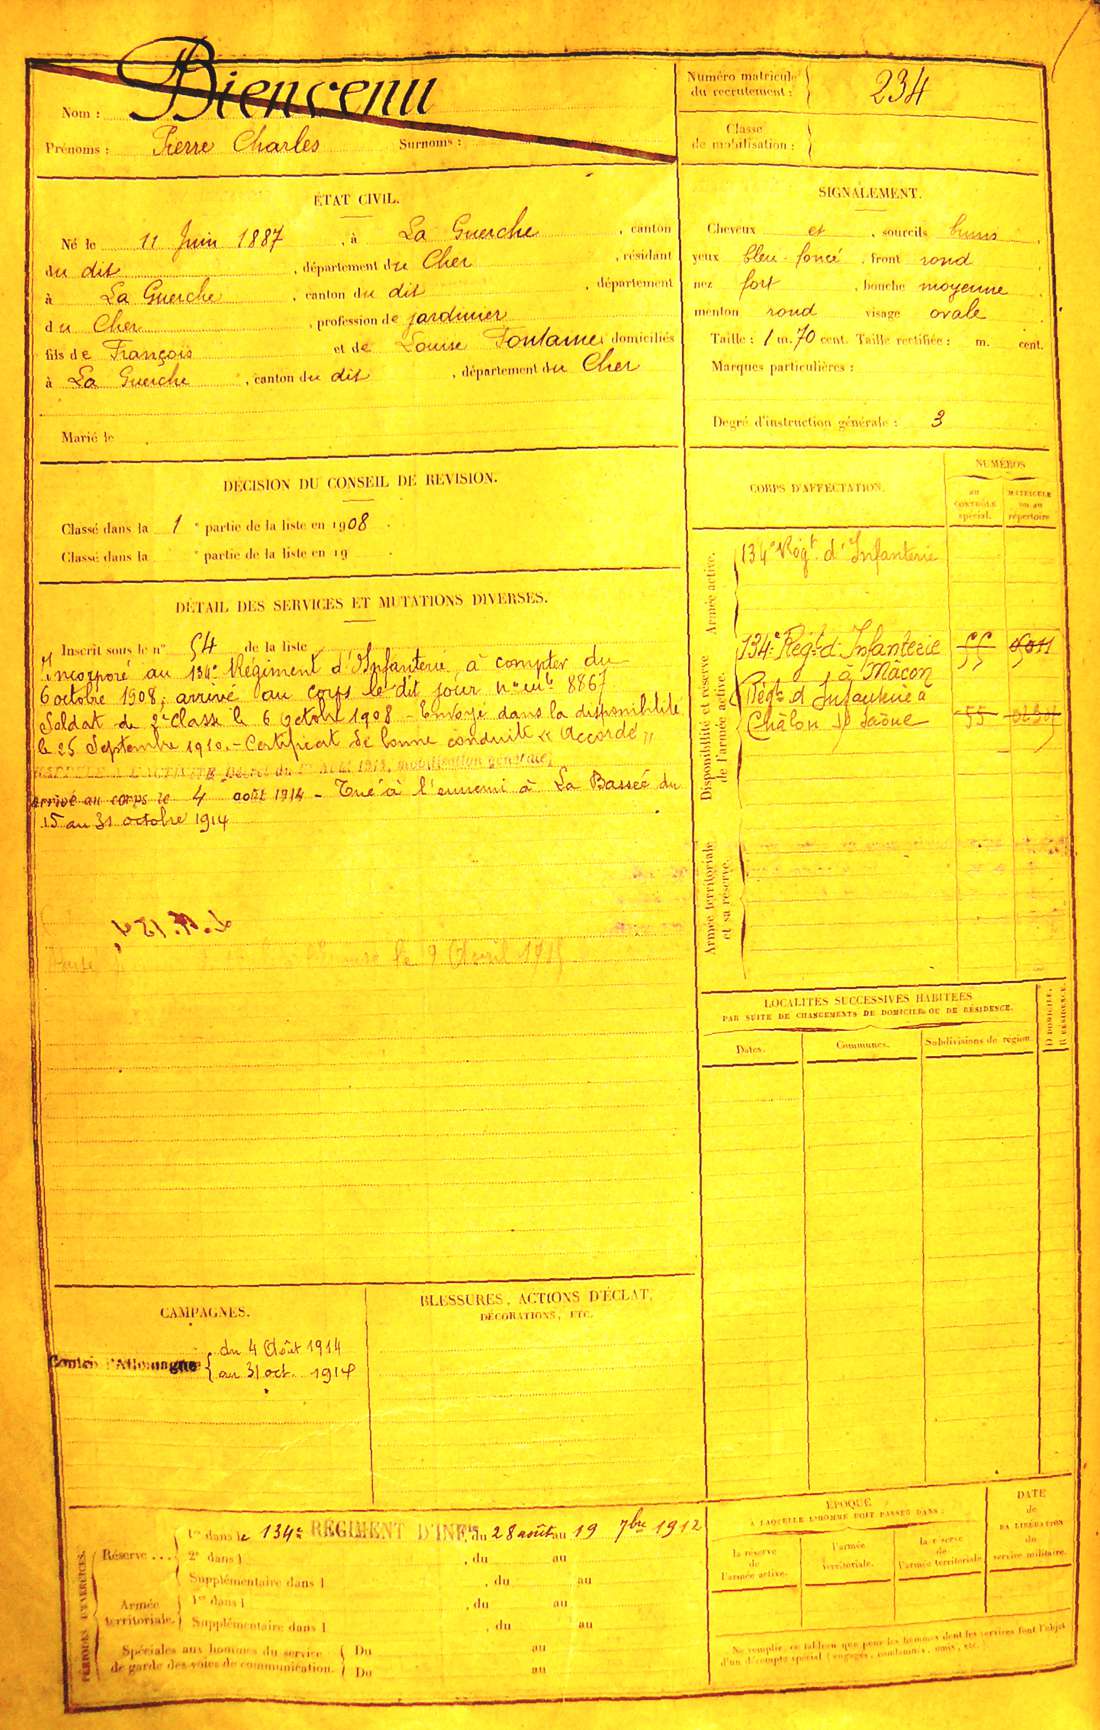 Nom : Bienvenu
Prénoms : Pierre Charles Surnoms :
Numéro matricule du recrutement : 234
Classe de mobilisation :
ÉTAT CIVIL.
Né le 11 Juin 1887, à La Guerche, canton
du dit, département du Cher, résidant
à La Guerche, canton du dit, département
du Cher, profession de jardinier
fils de François et de Louise Fontaine domiciliés
à La Guerche, canton du dit, département du Cher
Marié le
SIGNALEMENT.
Cheveux et, sourcils bruns,
yeux bleu-foncé, front rond
nez fort, bouche moyenne
menton rond visage ovale
Taille : 1 m. 70 cent. Taille rectifiée : m. cent.
Marques particulières :
Degré d'instruction générale : 3
DÉCISION DU CONSEIL DE REVISION.
Classé dans la 1e partie de la liste en 1908.
Classé dans la e partie de la liste en 19 .
DÉTAIL DES SERVICES ET MUTATIONS DIVERSES.
Inscrit sous le n° 54 de la liste
Incorporé au 134e Régiment d'Infanterie, à compter du
6 octobre 1908, arrivé au corps le dit jour, n° mle 8867
Soldat de 2e classe le 6 octobre 1908 - Envoyé dans la disponibilité
le 25 Septembre 1910. - Certificat de bonne conduite « Accordé »
RAPPELÉ A L'ACTIVITÉ Décret du 1er Août 1914, mobilisation générale,
Arrivé au corps le 4 août 1914 - Tué à l'ennemi à La Bassée du
15 au 31 octobre 1914
le 9 Avril 1915
CORPS D'AFFECTATION.
NUMÉROS
AU CONTRÔLE spécial.
MATRICULE ou au répertoire
Armée active.
134e Régt d'Infanterie
Disponibilité et réserve de l'armée active.
134e Régt d'Infanterie 55
à Mâcon
Régt d'Infanterie à
Châlon s/ Saône 55
Armée territoriale et sa réserve.
LOCALITÉS SUCCESSIVES HABITÉES
PAR SUITE DE CHANGEMENTS DE DOMICILE OU DE RÉSIDENCE.
Dates. Communes. Subdivisions de région. D DOMICILE. R RÉSIDENCE.
CAMPAGNES.
Contre l'Allemagne { du 4 Août 1914
au 31 oct. 1914
BLESSURES, ACTIONS D'ÉCLAT,
DÉCORATIONS, ETC.
PÉRIODES D'EXERCICES.
Réserve ...
1re dans le 134e RÉGIMENT D'INFie, du 28 août au 19 7bre 1912
2e dans l , du au
Supplémentaire dans l , du au
Armée territoriale.
1re dans l , du au
Supplémentaire dans l , du au
Spéciales aux hommes du service de garde des voies de communication. { Du au
Du au
ÉPOQUE
A LAQUELLE L'HOMME DOIT PASSER DANS :
la réserve de l'armée active.
l'armée territoriale.
la réserve de l'armée territoriale
DATE de LA LIBÉRATION du service militaire.
Ne remplir ce tableau que pour les hommes dont les services font l'objet
d'un décompte spécial (engagés, condamnés, omis, etc.